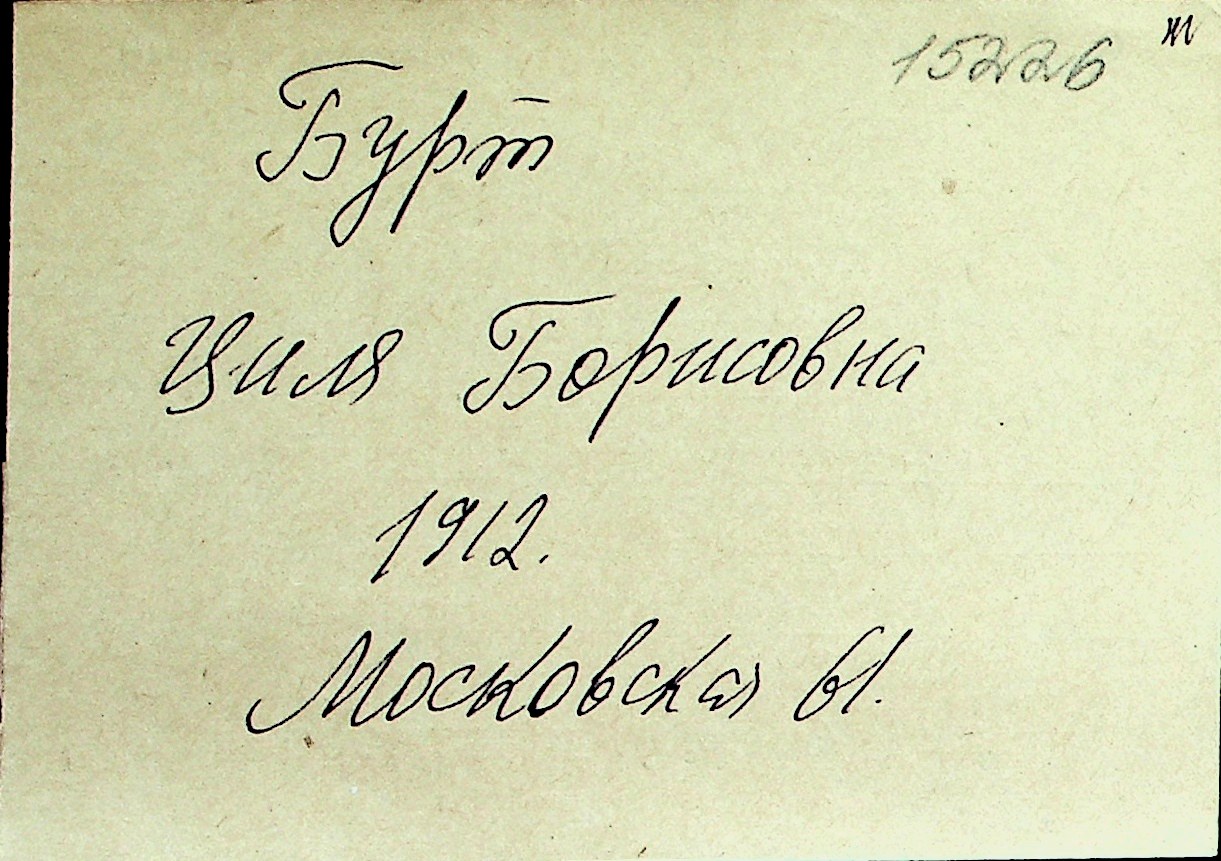 15226
Бурт
Циля Борисовна
1912.
Московская 61.